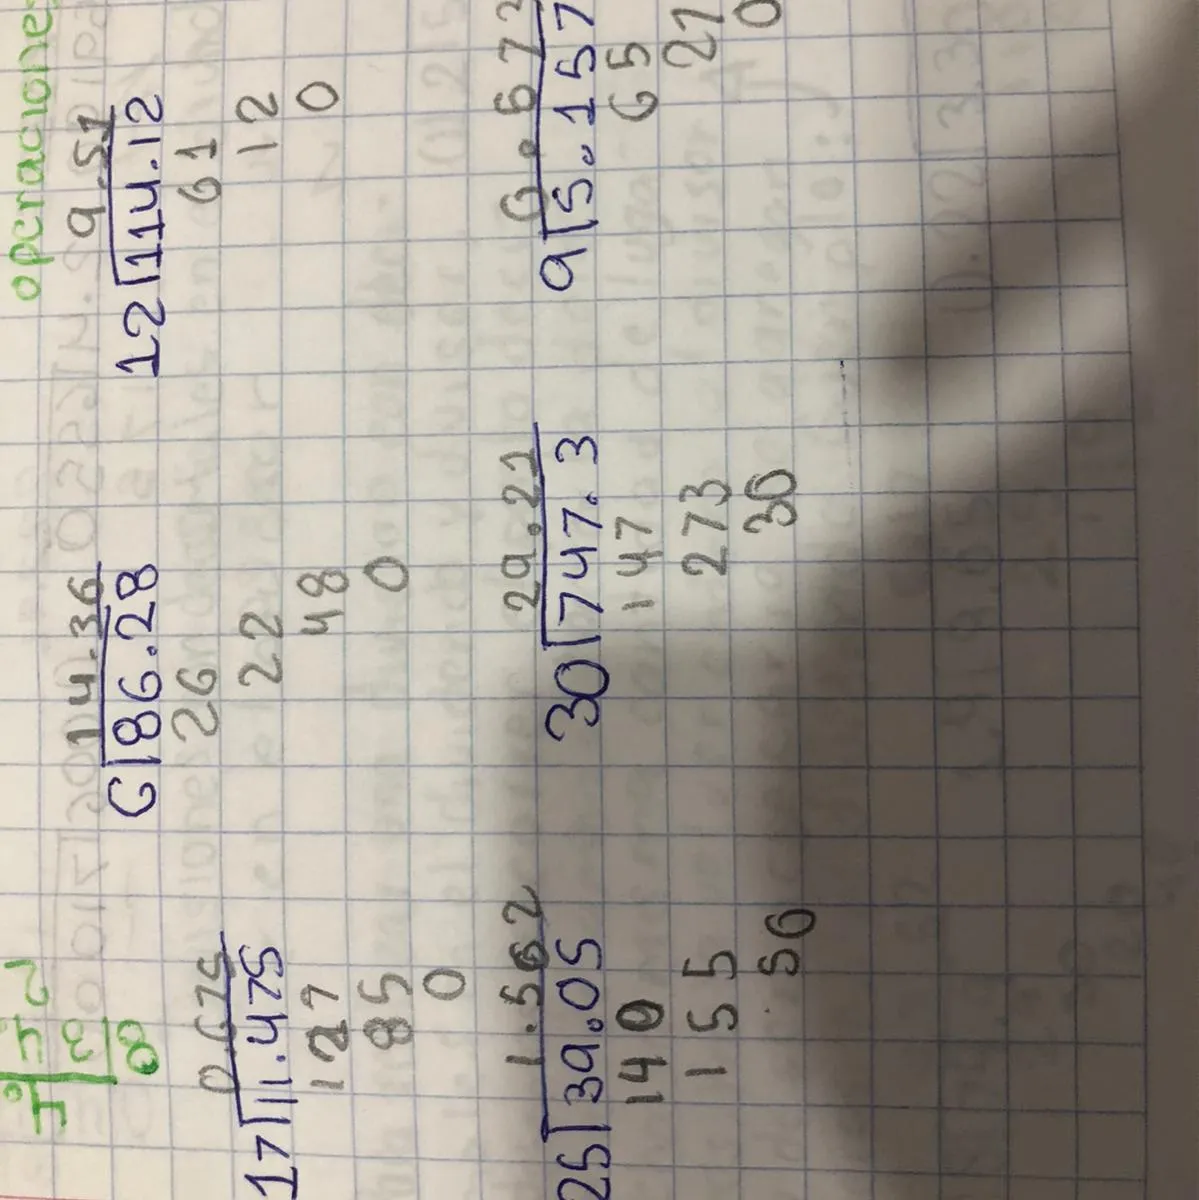 operacione
0.675
17 11.475
127
85
0
14.36
6 86.28
26
22
48
0
9.51
12 114.12
61
12
0
1.562
25 39.05
140
155
50
29.21
30 747.3
147
273
30
9 5.157
65
27
0